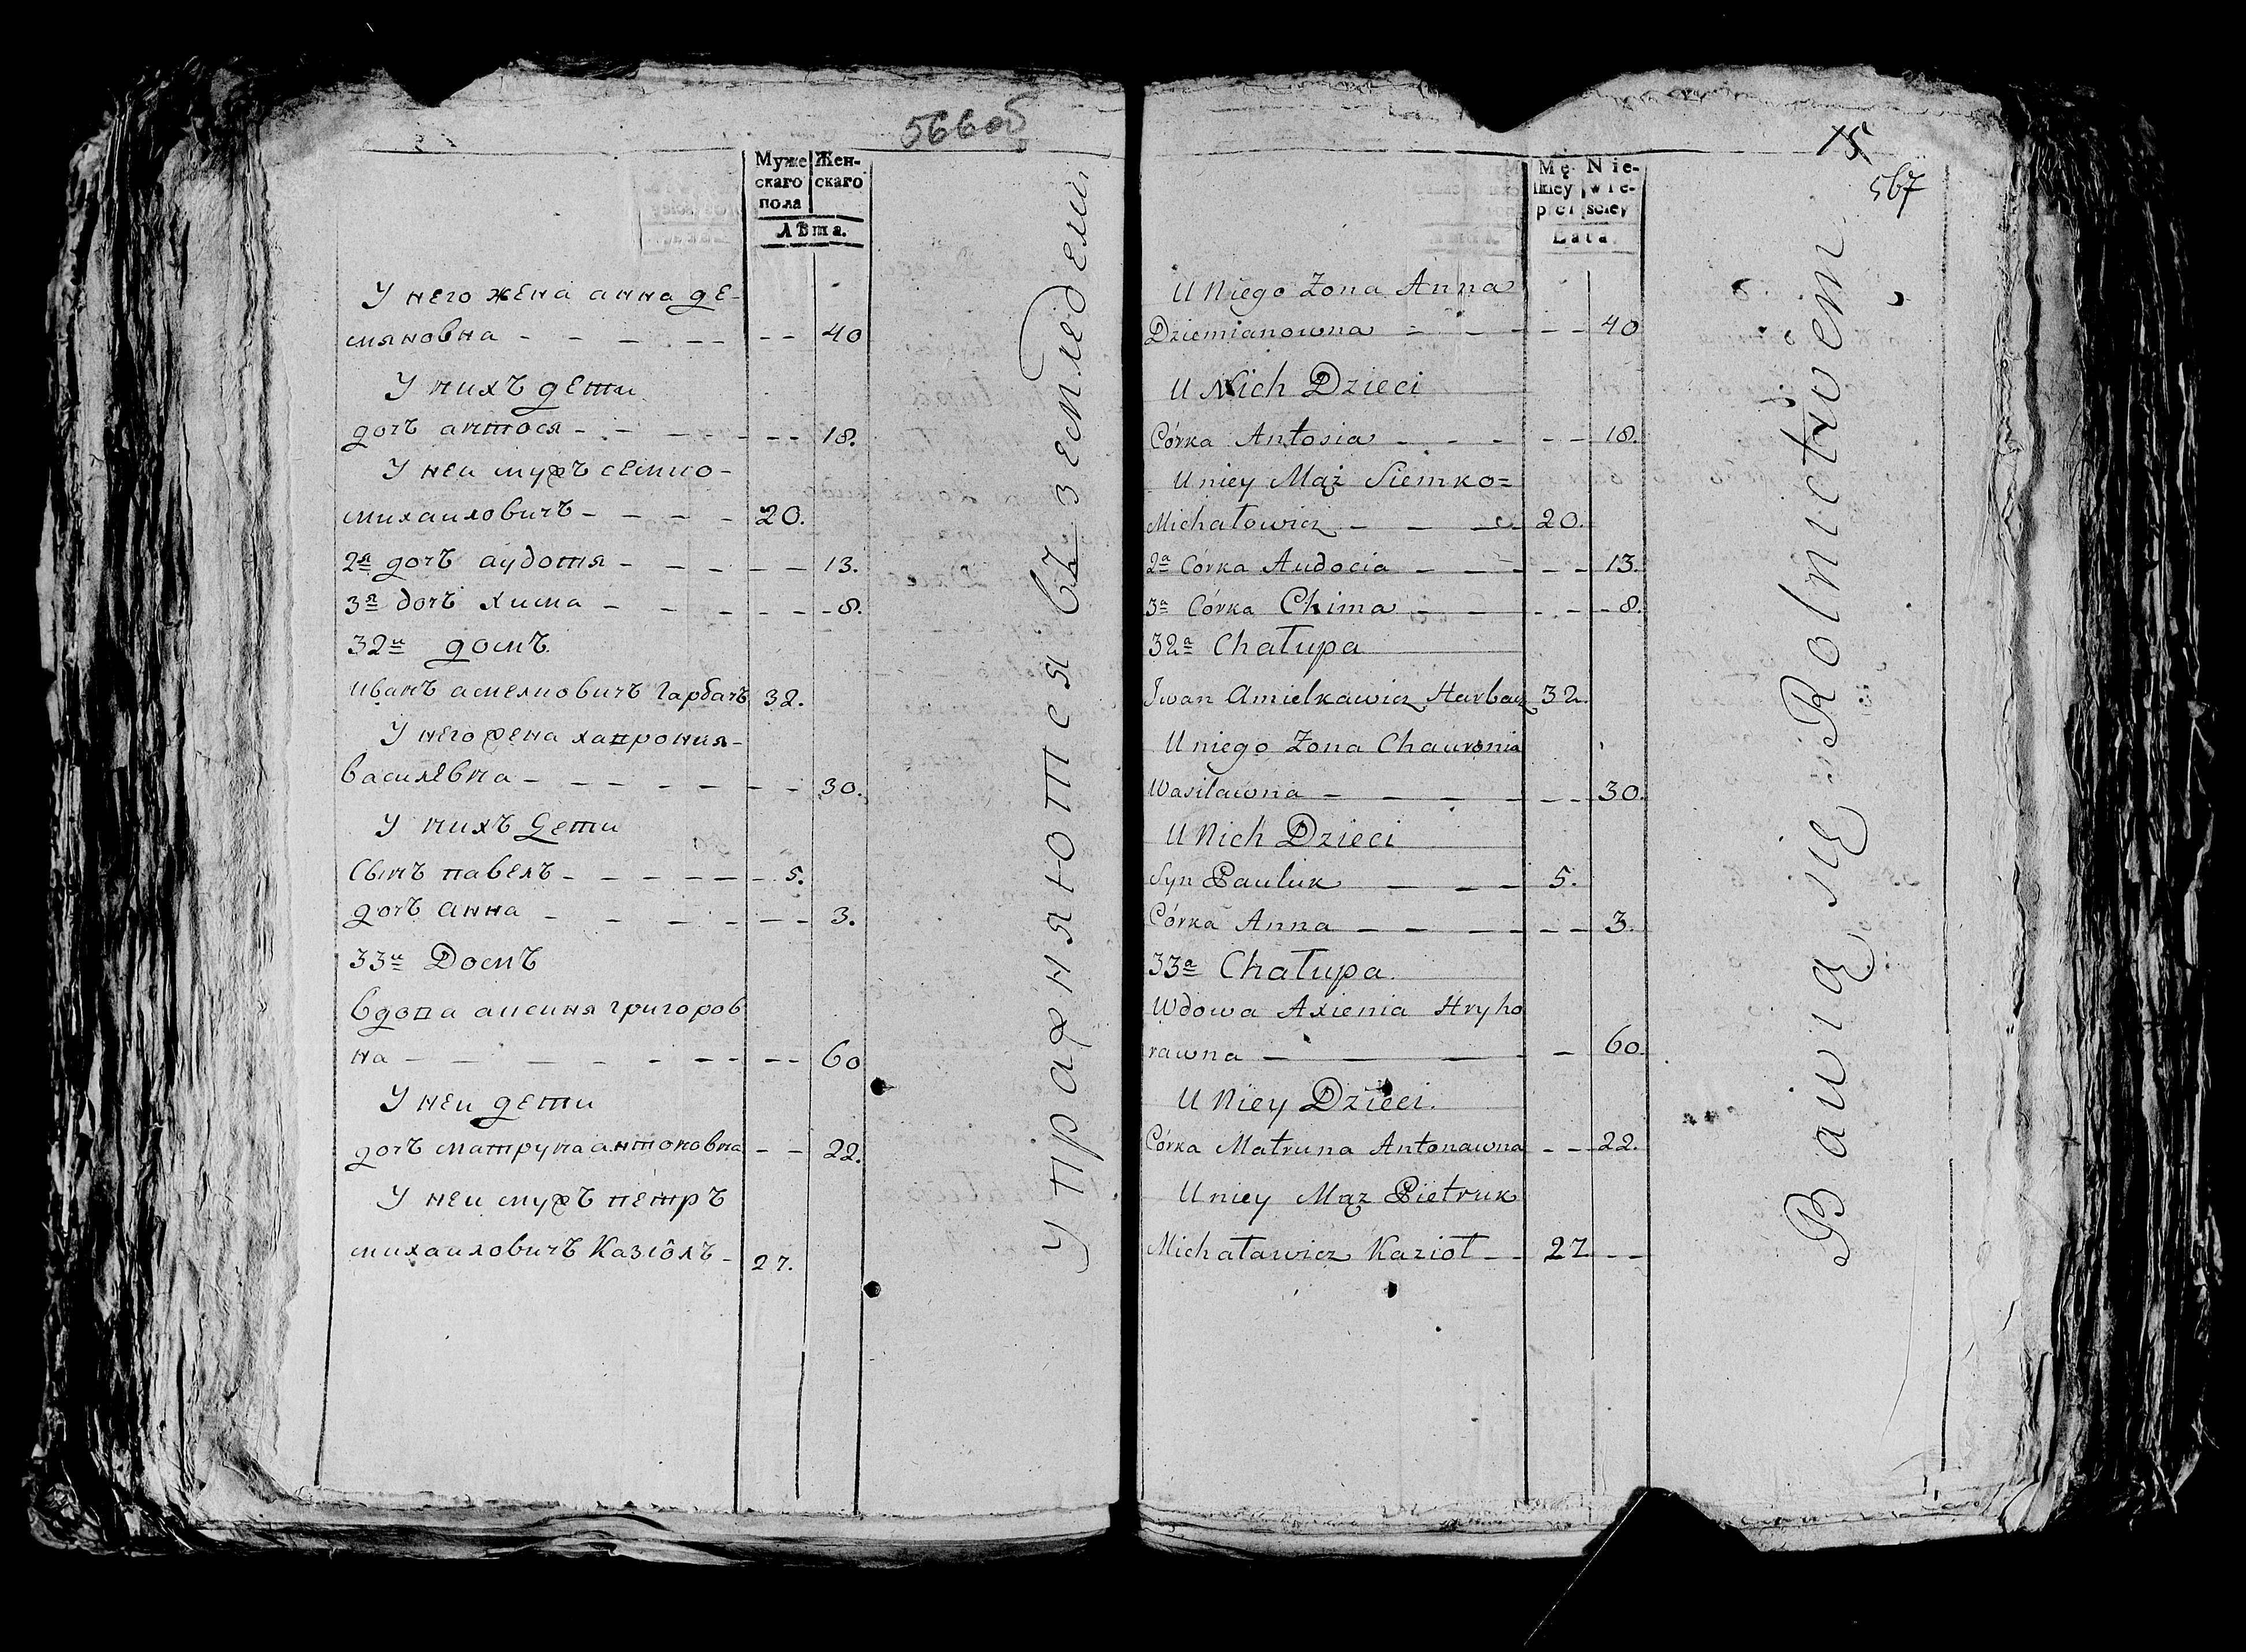 566об
Муже Жен-
скаго скаго
пола
Лѣта.
У него жена анна де-
мяновна - - - - - - - 40
У нихъ дети
дочъ антося - - - - - - 18.
У неи мужъ семко-
михаиловичъ - - - - 20.
2я дочъ аудотя - - - - - 13.
3я дочъ хима - - - - - - 8.
32и домъ
иванъ амелковичъ гарбачъ 32.
У него жена хапрония-
василѣвна - - - - - - 30.
У нихъ дети
сынъ павелъ - - - - - 5.
дочъ анна - - - - - - 3.
33и Домъ
вдова аксиня григоров
на - - - - - - - 60
У неи дети
дочъ матруна антоновна - - 22.
У неи мужъ петръ
михаиловичъ Казіôлъ - 27.
упражняются въ земледелии
15
567
Mę- Nie-
zkiey wie-
płci sciey
Lata
U Niego Zona Anna
Dziemianowna - - - - - 40
U Nich Dzieci
Córka Antosia - - - - - 18.
U niey Mąż Siemko=
Michałowicz - - - 20.
2a Córka Audocia - - - - - 13.
3a Córka Chima - - - - - 8.
32a Chałupa
Jwan Amielkawicz Harbacz 32.
U niego Zona Chauronia
Wasilawna - - - - - - 30.
U Nich Dzieci
Syn Pauluk - - - 5.
Córka Anna - - - - - 3.
33a Chałupa
Wdowa Axienia Hryho
rawna - - - - 60.
U Niey Dzieci.
Córka Matruna Antonawna - - 22.
U niey Mąz Pietruk
Michaławicz Kazioł - - 27 - -
Bawią się Rolnictwem